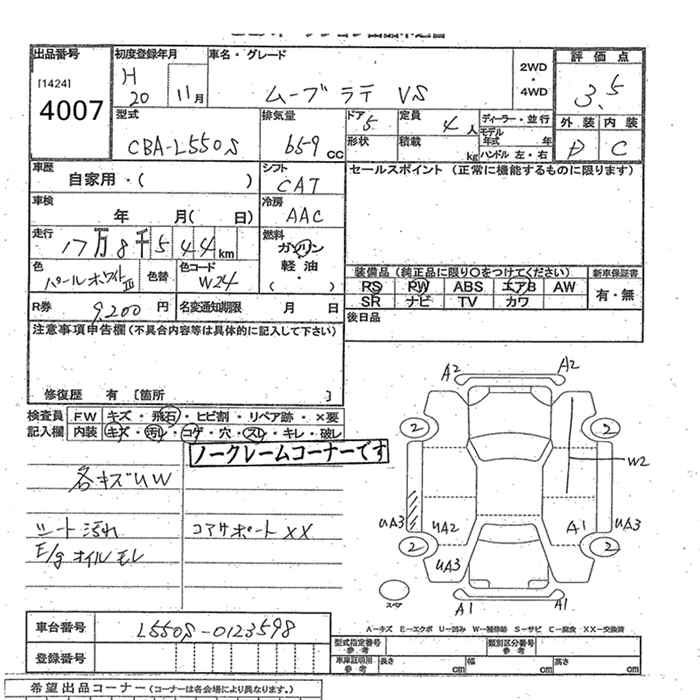 出品番号 初度登録年月 車名・グレード 2WD・4WD 評価点
[1424] H
4007 20 11月 ムーブ ラテ VS 3.5
型式 排気量 ドア 定員 ディーラー・並行 外装 内装
CBA-L550S 659cc 5 4人 モデル年式 年 D C
形状 積載 kg ハンドル 左・右
車歴 シフト セールスポイント (正常に機能するものに限ります)
自家用・( ) CAT
車検 冷房
年 月( 日) AAC
走行 燃料
17万8千544km ガソリン
軽油
・
( )
色 色替 色コード
パールホワイトⅢ W24
装備品 (純正品に限り○をつけてください) 新車保証書
RS PW ABS エアB AW 有・無
SR ナビ TV カワ
R券 9,200円 名変通知期限 月 日 後日品
注意事項申告欄(不具合内容等は具体的に記入して下さい)
修復歴 有 [箇所 ]
検査員 FW キズ・飛石・ヒビ割・リペア跡・×要
記入欄 内装 キズ・汚れ・コゲ・穴・スレ・キレ・破レ
ノークレームコーナーです
各キズUW
シート汚れ コアサポートXX
E/gオイルモレ
A2 A2
2 2
W2
UA3 UA2 A1 UA3
2 2
UA3
A1 A1
スペア
A-キズ E-エクボ U-凹み W-補修跡 S-サビ C-腐食 XX-交換済
車台番号 L550S-0123598
登録番号
型式指定番号 参考 類別区分番号 参考
車庫証明用 参考 長さ cm 幅 cm 高さ cm
希望出品コーナー(コーナーは各会場により異なります。)